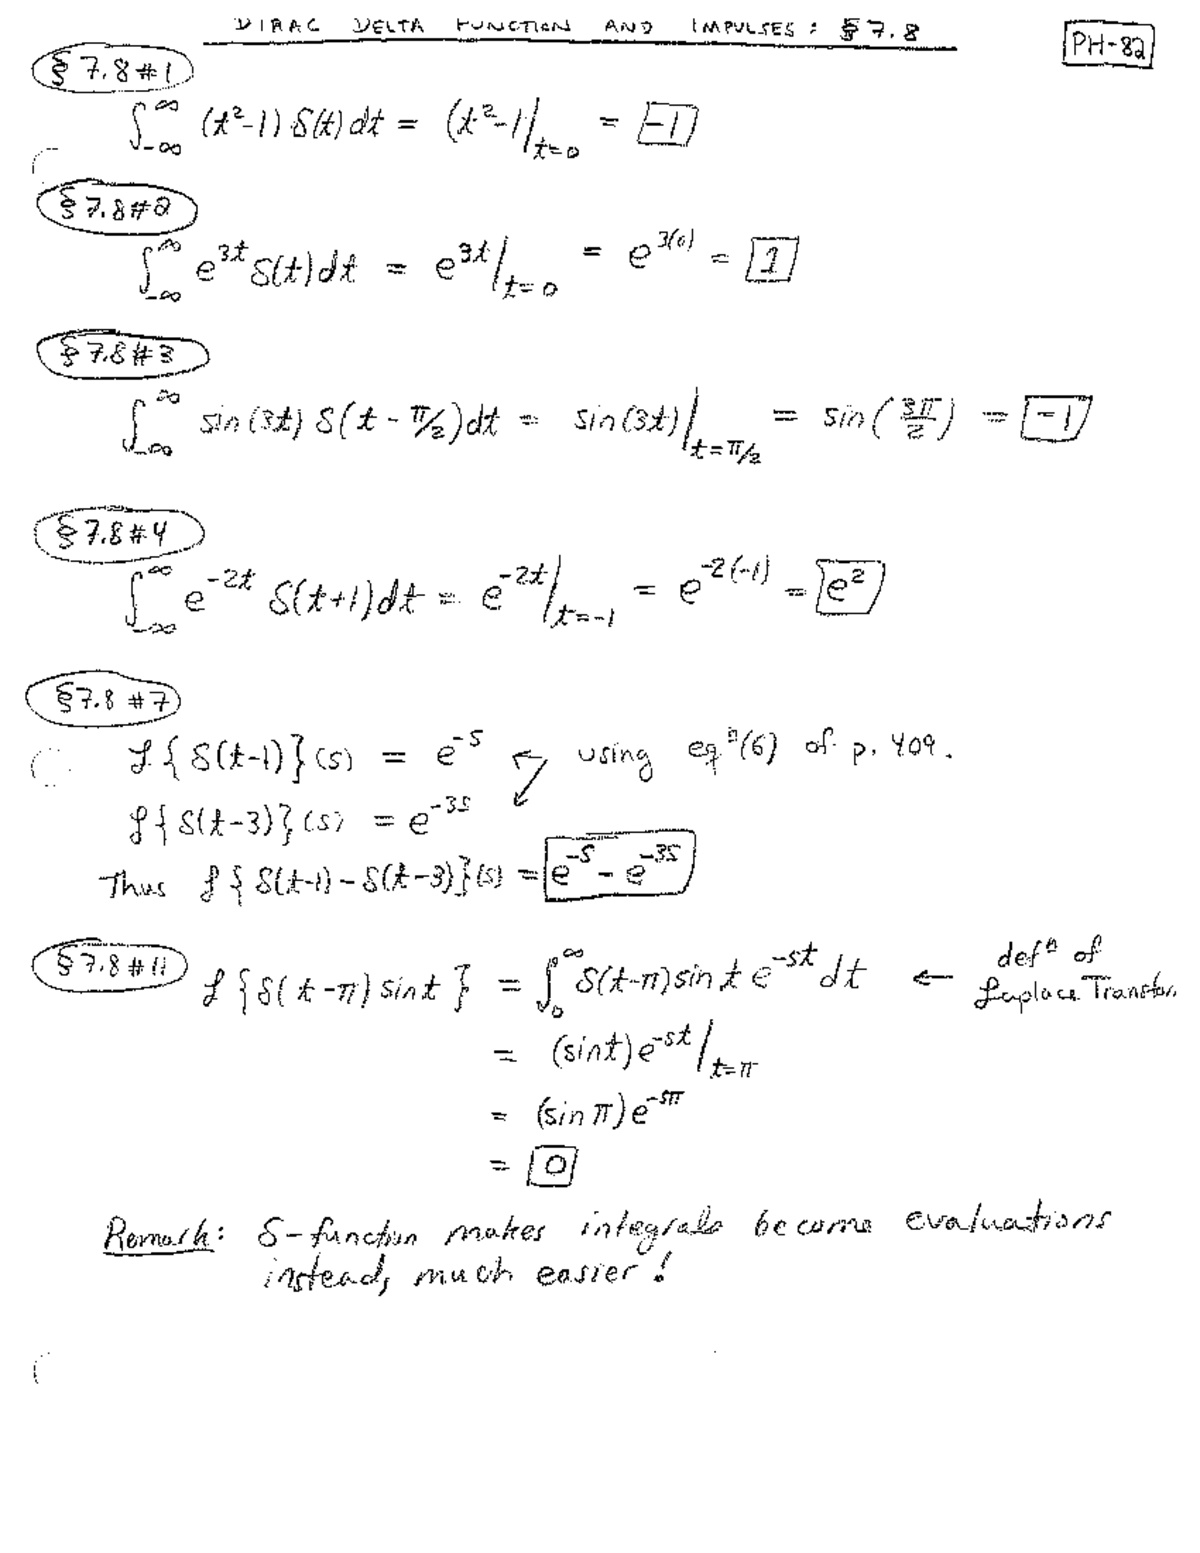 DIRAC DELTA FUNCTION AND IMPULSES: § 7.8
PH-82
§ 7.8 #1
∫_{-∞}^{∞} (t²-1) δ(t) dt = (t²-1|_{t=0} = -1
§ 7.8 #2
∫_{-∞}^{∞} e^{3t} δ(t) dt = e^{3t}|_{t=0} = e^{3(0)} = 1
§ 7.8 #3
∫_{-∞}^{∞} sin(3t) δ(t - π/2) dt = sin(3t)|_{t=π/2} = sin(3π/2) = -1
§ 7.8 #4
∫_{-∞}^{∞} e^{-2t} δ(t+1) dt = e^{-2t}|_{t=-1} = e^{-2(-1)} = e²
§ 7.8 #7
ℒ{δ(t-1)}(s) = e^{-s} ↖ using eqⁿ(6) of p. 409.
ℒ{δ(t-3)}(s) = e^{-3s} ↙
Thus ℒ{δ(t-1) - δ(t-3)}(s) = e^{-s} - e^{-3s}
§ 7.8 #11
ℒ{δ(t-π) sin t} = ∫_0^∞ δ(t-π) sin t e^{-st} dt ← defⁿ of
Laplace Transfor
= (sin t) e^{-st}|_{t=π}
= (sin π) e^{-sπ}
= 0
Remark: δ-function makes integrals become evaluations
instead, much easier!